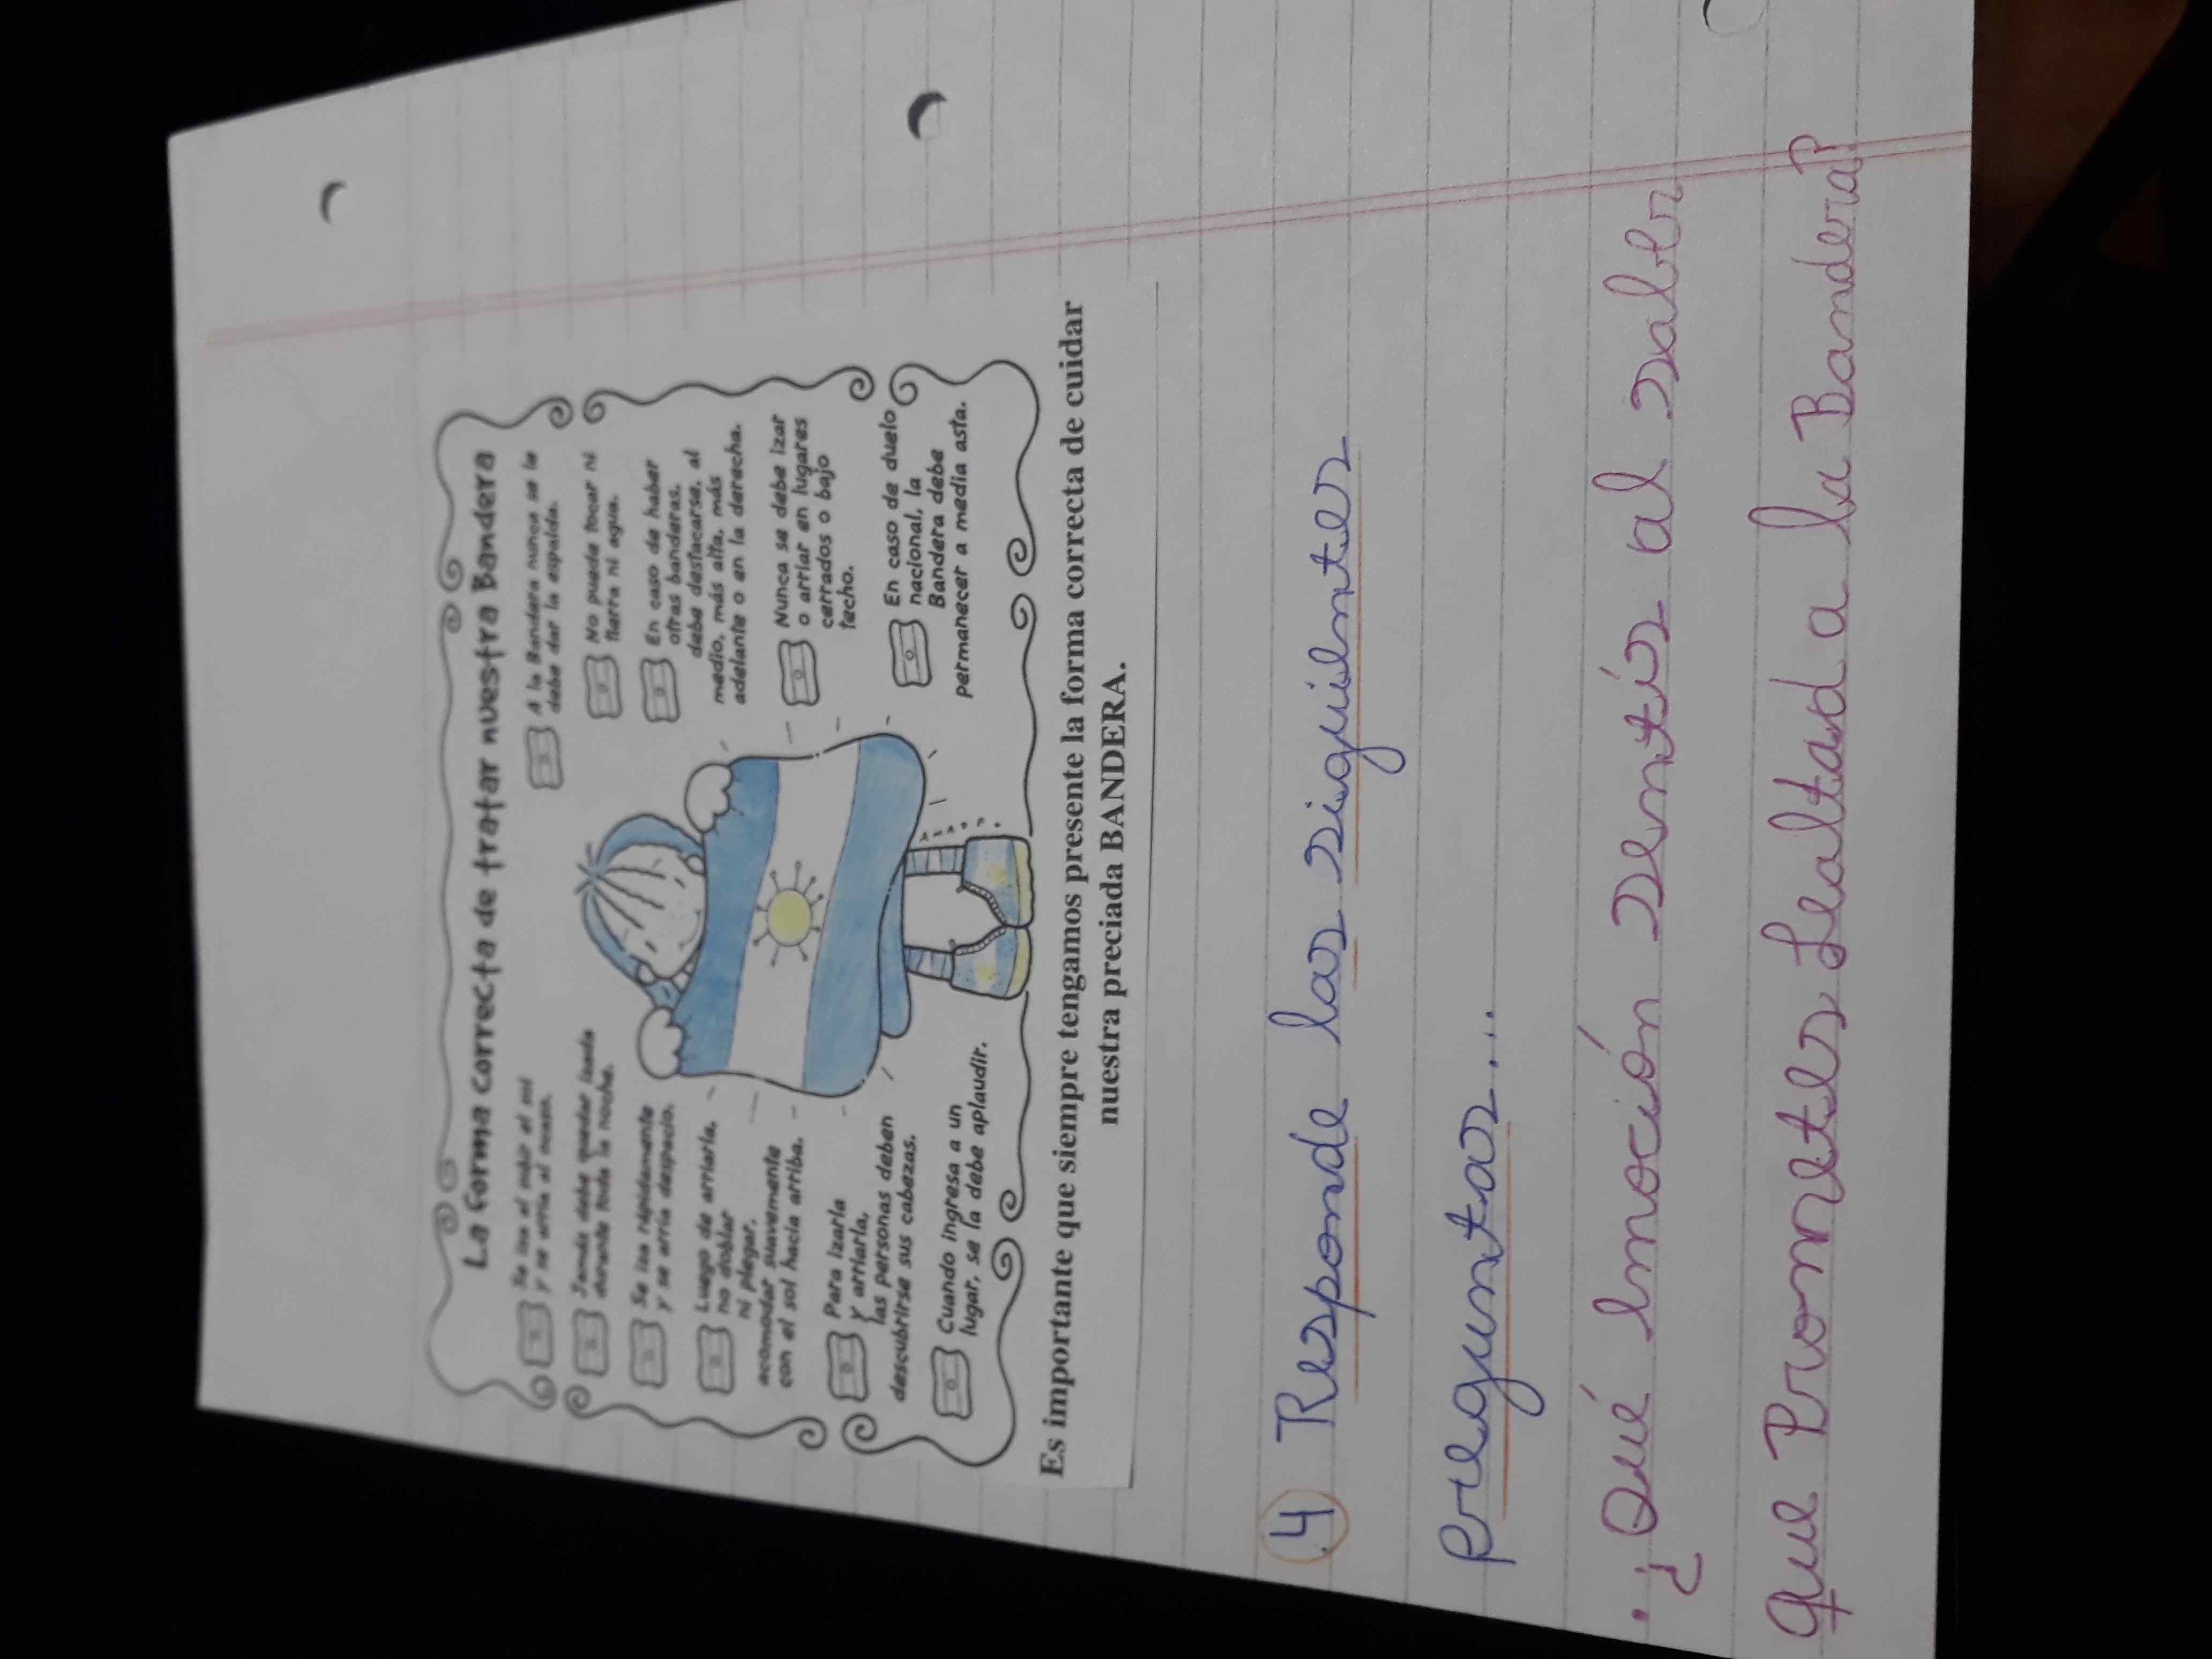 La forma correcta de tratar nuestra Bandera
Se iza al subir el sol
y se arría al ocaso.
Jamás debe quedar izada
durante toda la noche.
Se iza rápidamente
y se arría despacio.
Luego de arriarla,
no doblar
ni plegar,
acomodar suavemente
con el sol hacia arriba.
Para izarla
y arriarla,
las personas deben
descubrirse sus cabezas.
Cuando ingresa a un
lugar, se la debe aplaudir.
A la Bandera nunca se le
debe dar la espalda.
No puede tocar ni
tierra ni agua.
En caso de haber
otras banderas,
debe destacarse, al
medio, más alta, más
adelante o en la derecha.
Nunca se debe izar
o arriar en lugares
cerrados o bajo
techo.
En caso de duelo
nacional, la
Bandera debe
permanecer a media asta.
Es importante que siempre tengamos presente la forma correcta de cuidar
nuestra preciada BANDERA.
4 Responde las siguientes
preguntas...
• ¿Qué emoción sentís al saber
que Prometes Lealtad a la Bandera?